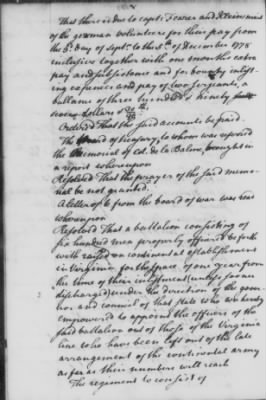 That there is due to capts. and
of the german volunteers for their pay from
the 5th. day of Septr. to the 5th. of December 1778
inclusive together with one month extra
pay and subsistence and for bounty inlist-
ing expences and pay of two sergeants, a
ballance of three hundred & ninety
seven dollars
Ordered That the said accounts be paid.
The board of treasury, to whom was referred
the Memorial of col. de la Balme brought in
a report whereupon
Resolved That the prayer of the said memo-
rial be not granted.
A letter of 6 from the board of war was read
whereupon
Resolved That a battalion consisting of
six hundred men properly officered be forth
with raised on continental establishment
in Virginia for the space of one year from
the time of their inlistment (unless sooner
discharged) under the direction of the gover
nor and council of that state who are hereby
empowered to appoint the officers of the
said battalion out of those of the Virginia
line who have been left out of the late
arrangement of the continental army
as far as their numbers will reach
The regiment to consist of